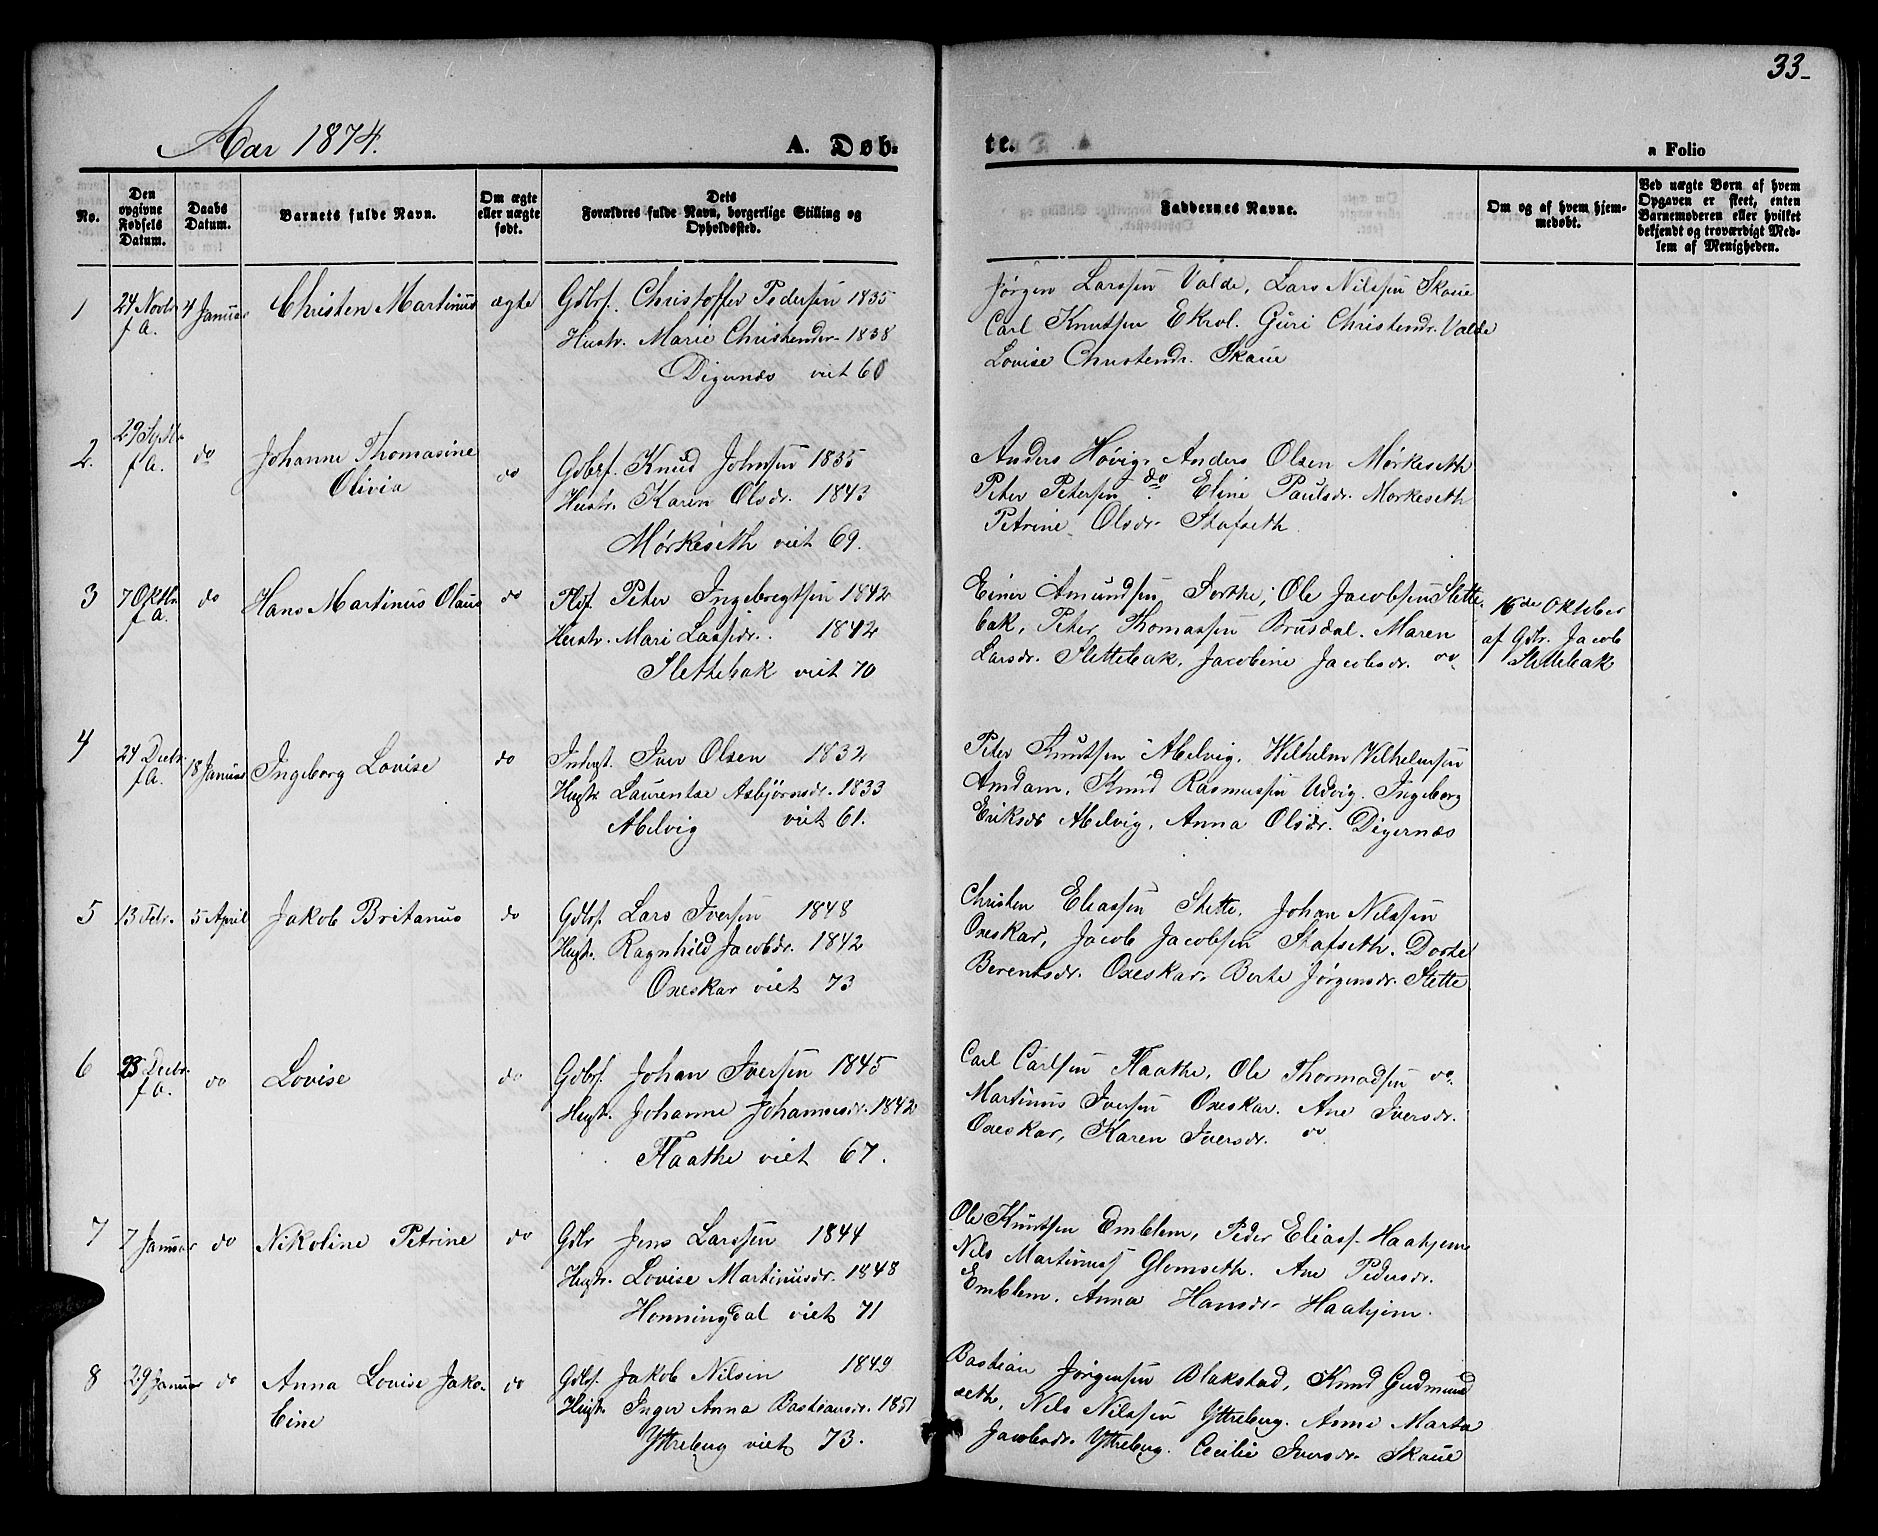 33
Aar 1874.
A. Døb-
te.
a Folio
No.
Den
opgivne
Fødsels
Datum.
Daabs
Datum.
Barnets fulde Navn.
Om ægte
eller uægte
født.
Dets
Forældres fulde Navn, borgerlige Stilling og
Opholdssted.
Faddernes Navne.
Om og af hvem hjem-
medøbt.
Ved uægte Børn af hvem
Opgaven er skeet, enten
Barnemoderen eller hvilket
bekjendt og troværdigt Med-
lem af Menigheden.
1
24 Novbr
f. A.
4 Januar
Christen Martinus
ægte
Gdbrf. Christoffer Pedersen 1835
Hustr. Marie Christendr. 1838
Digernæs viet 60
Jørgen Larssen Valde, Lars Nilssen Skaue
Carl Knutsen Ekrol. Guri Christendr. Valde
Lovise Christendr. Skaue
2.
29 Septbr
f A.
do
Johanne Thomasine
Olivia
do
Gdbrf. Knud Johnsen 1835
Hustr. Karen Olsdr. 1843
Mørkeseth viet 69.
Anders Høvig, Anders Olsen Mørkeseth
Peter Petersen do. Eline Paulsdr. Mørkeseth
Petrine Olsdr. Stafseth
3
7 Oktbr
f A.
do
Hans Martinus Olaus
do
Plsf. Peter Ingebregtsen 1842
Hustr. Mari Larsdr. 1842
Slettebak viet 70
Einer Amundsen Sorthe, Ole Jacobsen Slette-
bak, Peter Thomassen Brusdal. Maren
Larsdr. Slettebak, Jacobine Jacobsdr. do
16de Oktober
af Gdbr. Jacob
Slettebak
4
24 Decbr
f A.
18 Januar
Ingeborg Lovise
do
Inderst. Iver Olsen 1832
Hustr. Laurentse Asbjørnsdr. 1833
Abelvig viet 61.
Peter Knutsen Abelvig, Vilhelm Vilhelmsen
Amdam, Knud Rasmussen Udvig. Ingeborg
Eriksdr Abelvig, Anna Olsdr. Digernæs
5
13 Febr.
5 April
Jakob Britanus
do
Gdbrf. Lars Iversen 1848
Hustr. Ragnhild Jacobdr. 1842
Oxeskar viet 73
Christen Eliassen Slette. Johan Nilssen
Oxeskar, Jacob Jacobsen Stafseth. Dorte
Berentsdr. Oxeskar. Berte Jørgensdr. Slette
6
Decbr.
f A.
do
Lovise
do
Gdbrf. Johan Iversen 1845
Hustr. Johanne Johannesdr. 1842
Flaathe viet 67.
Carl Carlsen Flaathe, Ole Thormodsen do.
Martinus Iversen Oxeskar. Ane Iversdr.
Oxeskar, Karen Iversdr. do
7
7 Januar
do
Nikoline Petrine
do
Gdbr Jens Larssen 1844
Hustr. Lovise Martinusdr. 1848
Honningdal viet 71
Ole Knutsen Emblem, Peder Eliasf. Haahjem
Nils Martinusf Glomseth. Ane Pedersdr.
Emblem, Anna Hansdr. Haahjem.
8
29 Januar
do
Anna Lovise Jako-
bine
do
Gdbf. Jakob Nilsen 1849
Hustr. Inger Anna Bastiansdr. 1851
Yttreberg viet 73.
Bastian Jørgensen Blakstad, Knud Gudmund
seth, Nils Nilssen Yttreberg. Anne Marta
Jacobsdr. Yttreberg. Cecilie Iversdr. Skaue